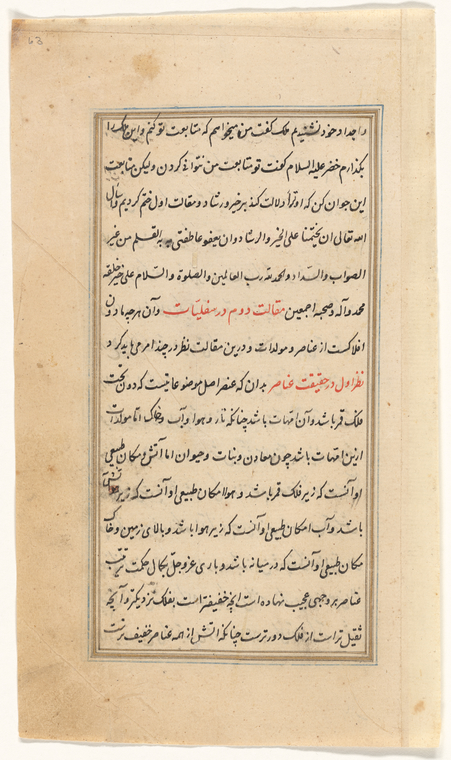 واجداد خود نشنیدیم ملک گفت من میخواهم که متابعت تو کنم و این ملک را
بگذارم خضر علیه السلام گفت تو متابعت من نتوانی کردن ولیکن متابعت
این جوان کن که او ترا دلالت کند بر خیر و رشاد و مقالت اول ختم کردیم
الله تعالی ان یختمنا علی الخیر والرشاد وان یعفو عما طغی به القلم من غیر
الصواب والسداد والحمد لله رب العالمین والصلوة والسلام علی خیر خلقه
محمد وآله وصحبه اجمعین مقالت دوم در سفلیات وآن هرچه مادون
افلاکست از عناصر و مولدات و درین مقالت نظر در چند امر می باید کرد
نظر اول در حقیقت عناصر بدان که عنصر اصل موضوعاتیست که دون تحت
فلک قمر باشد وآن امهات باشد چنانکه نار و هوا وآب و خاک اما مولدات
ازین امهات باشد چون معادن و نبات و حیوان اما آتش و مکان طبیعی
او آنست که زیر فلک قمر باشد و هوا مکان طبیعی او آنست که زیر آتش
باشد وآب امکان طبیعی او آنست که زیر هوا باشد و بالای زمین و خاک
مکان طبیعی او آنست که در میانه باشد و باری عز وجل بکمال حکمت ترتیب
عناصر بر وجهی عجیب نهاده است آنچه خفیفتر است بفلک نزدیکتر وآنچه
ثقیل تر است از فلک دورترست چنانکه آتش از همه عناصر خفیف ترست